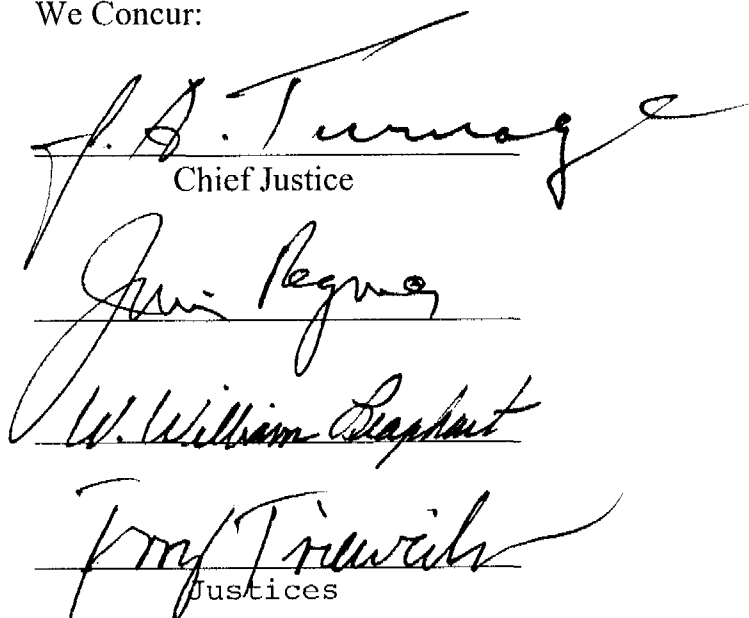 We Concur:
J. A. Turnage
Chief Justice
Jim Regnier
W. William Leaphart
Terry Trieweiler
Justices